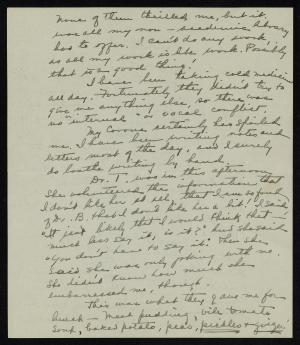 None of them thrilled me, but it
was all my non-academic library
has to offer. I can't do any work,
as all my work is lab work. Possibly
that is a good thing!
I have been taking cold medicine
all day. Fortunately they didn't try to
give me anything else, so there was
no "internal" or vocal conflict.
My Corona certainly has spoiled
me. I have been writing notes and
letters most of the day, and I surely
do loathe writing by hand.
Dr. T. was in this afternoon.
She volunteered the information that
I don't like her at all, that I am so fond
of Dr. B. that I don't like her a bit! I said
"It isn't likely that I would think that —
much less say it, is it?" and she said
"You don't have to say it." Then she
said she was only joking with me.
She didn't know how much she
embarrassed me, though.
This was what they gave me for
lunch — Meat pudding, vile tomato
soup, baked potato, peas, pickles & ginger